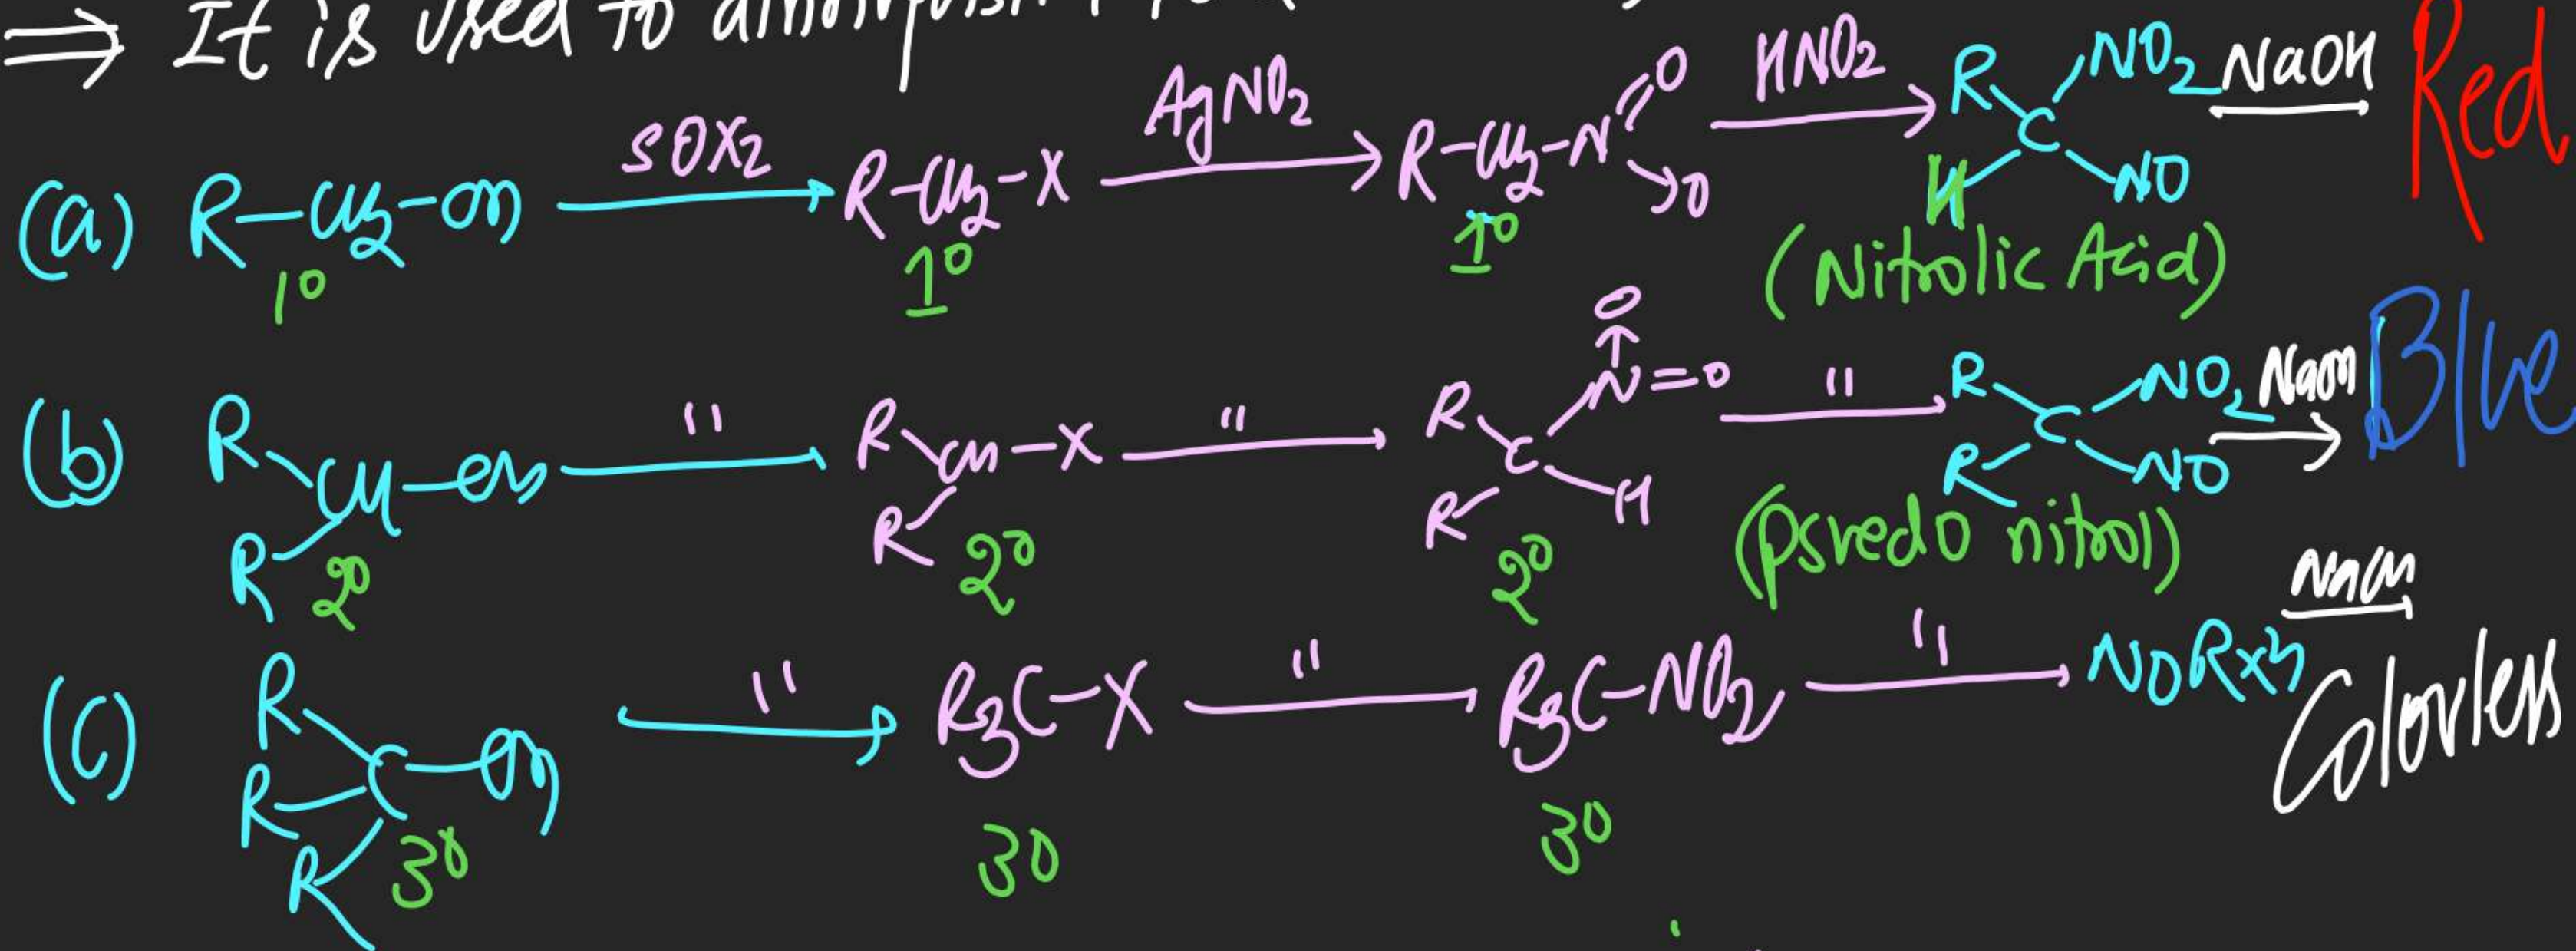 ⇒ It is used to distinguish
(a) R-CH2-OH SOX2 R-CH2-X AgNO2 R-CH2-N=O →O HNO2 R C NO2 H NO NaOH Red
1° 1° 1° (Nitrolic Acid)
(b) R R CH-OH " R R CH-X " R R C H N=O ↑ O " R R C NO2 NO NaOH Blue
2° 2° 2° (psuedo nitrol)
(c) R R R C-OH " R3C-X " R3C-NO2 " NO Rxn NaOH Colorless
3° 3° 3°